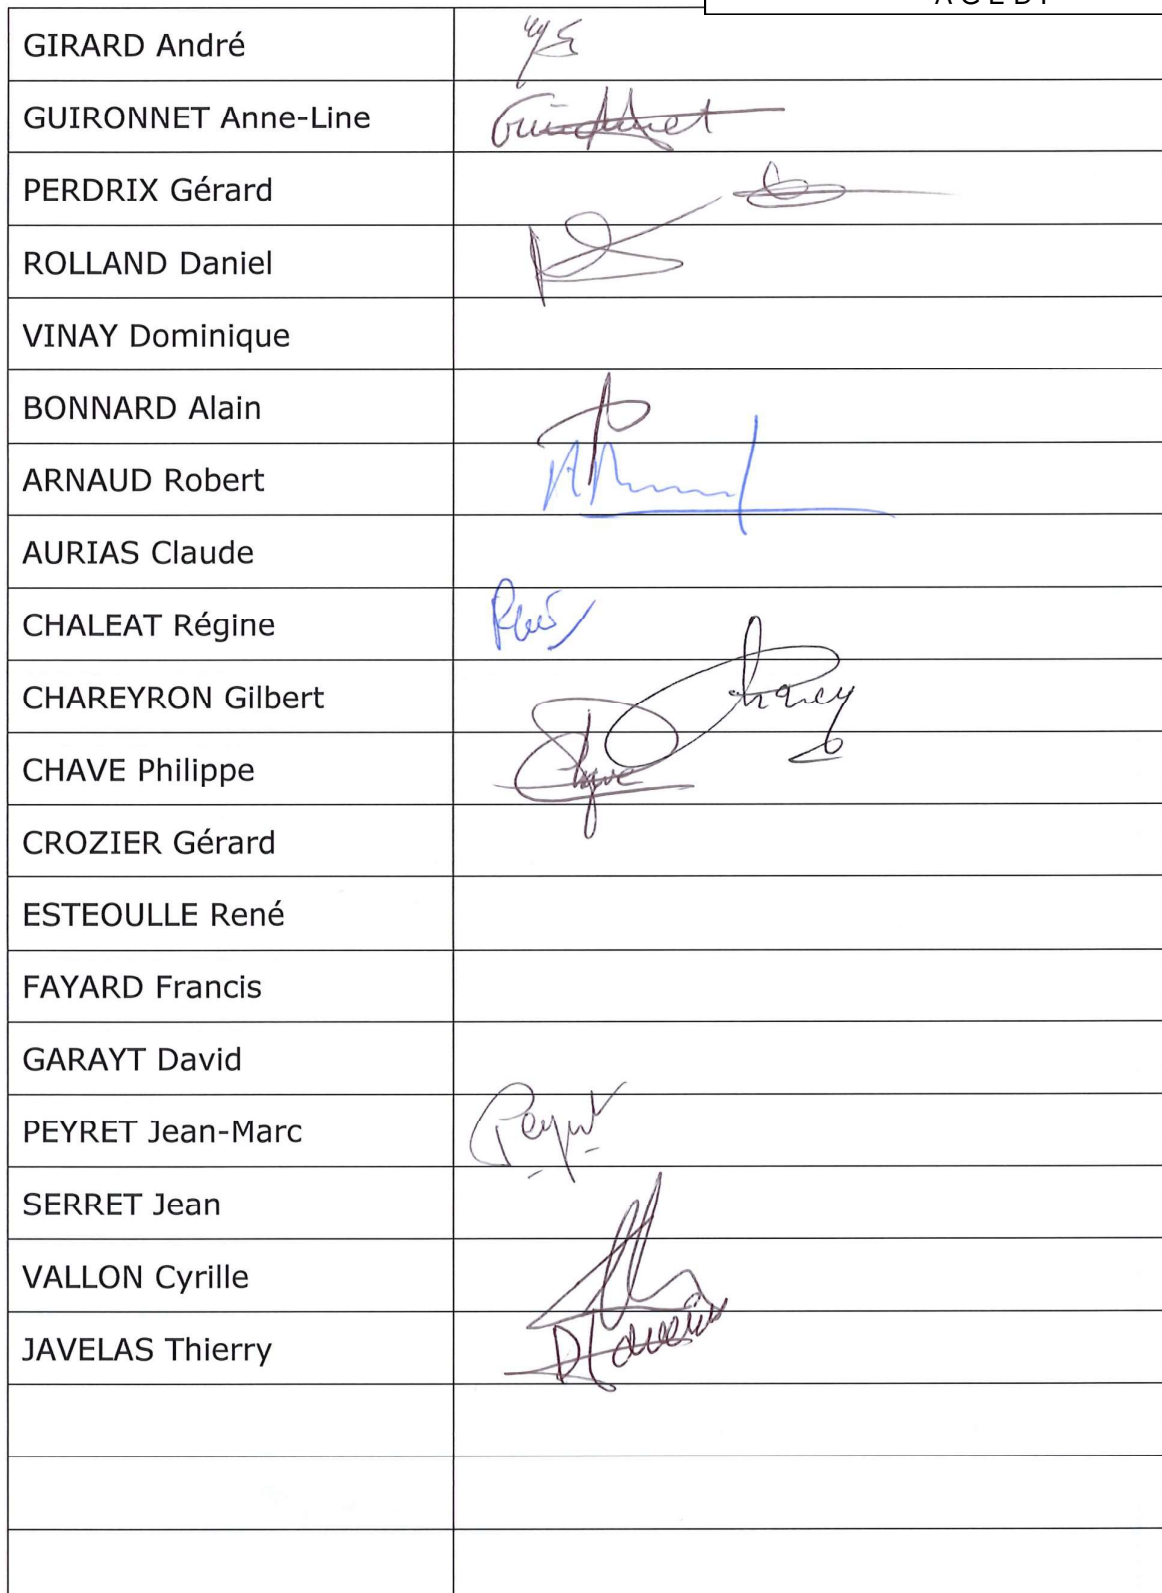 AGEDI
GIRARD André
GUIRONNET Anne-Line
PERDRIX Gérard
ROLLAND Daniel
VINAY Dominique
BONNARD Alain
ARNAUD Robert
AURIAS Claude
CHALEAT Régine
CHAREYRON Gilbert
CHAVE Philippe
CROZIER Gérard
ESTEOULLE René
FAYARD Francis
GARAYT David
PEYRET Jean-Marc
SERRET Jean
VALLON Cyrille
JAVELAS Thierry